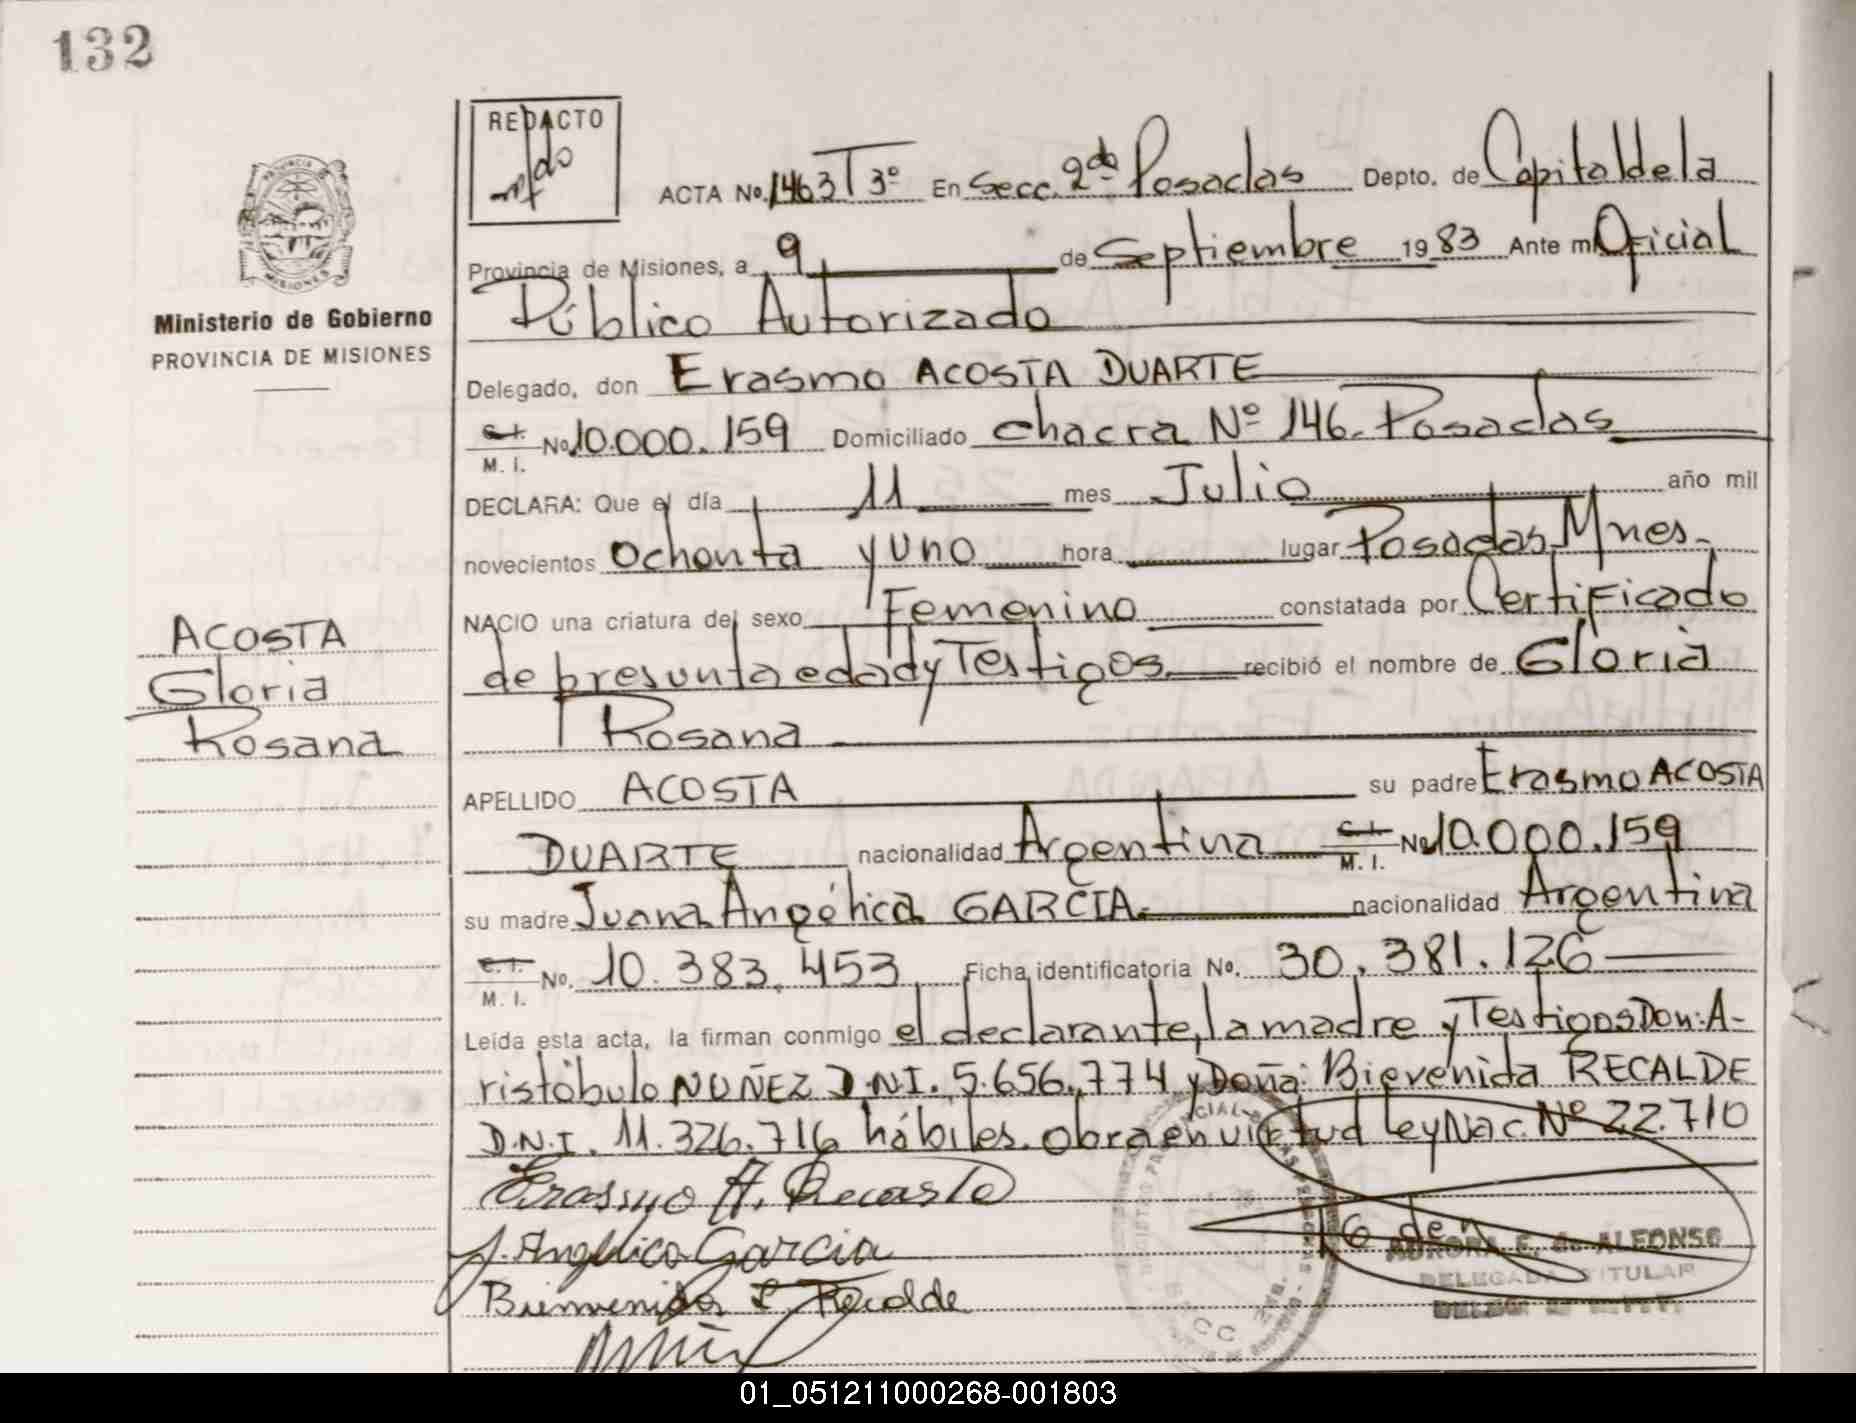 132
REDACTO
ACTA No. 1463 T 3º En Secc. 2da Posadas Depto. de Capital de la
PROVINCIA
MISIONES
Provincia de Misiones, a 9 de Septiembre 1983 Ante mi Oficial
Ministerio de Gobierno
PROVINCIA DE MISIONES
Público Autorizado
Delegado, don Erasmo ACOSTA DUARTE
C.I. M.I. No 10.000.159 Domiciliado chacra Nº 146. Posadas
DECLARA: Que el día 11 mes Julio año mil
novecientos ochenta y uno hora lugar Posadas, Mnes.
NACIO una criatura del sexo Femenino constatada por Certificado
ACOSTA
Gloria
Rosana
de presunta edad y Testigos recibió el nombre de Gloria
Rosana
APELLIDO ACOSTA su padre Erasmo ACOSTA
DUARTE nacionalidad Argentina C.I. M.I. No 10.000.159
su madre Juana Angélica GARCIA. nacionalidad Argentina
C.I. M.I. No. 10.383.453 Ficha identificatoria No. 30.381.126
Leída esta acta, la firman conmigo el declarante, la madre y Testigos Don: A-
ristóbulo NUÑEZ D.N.I. 5.656.774 y Doña: Bievenida RECALDE
D.N.I. 11.326.716 hábiles. obra en virtud ley Nac. Nº 22.710
Erasmo A.
J. Angelica Garcia
Bienvenida Recalde
AURORA E. de ALFONSO
DELEGADA TITULAR
01_051211000268-001803